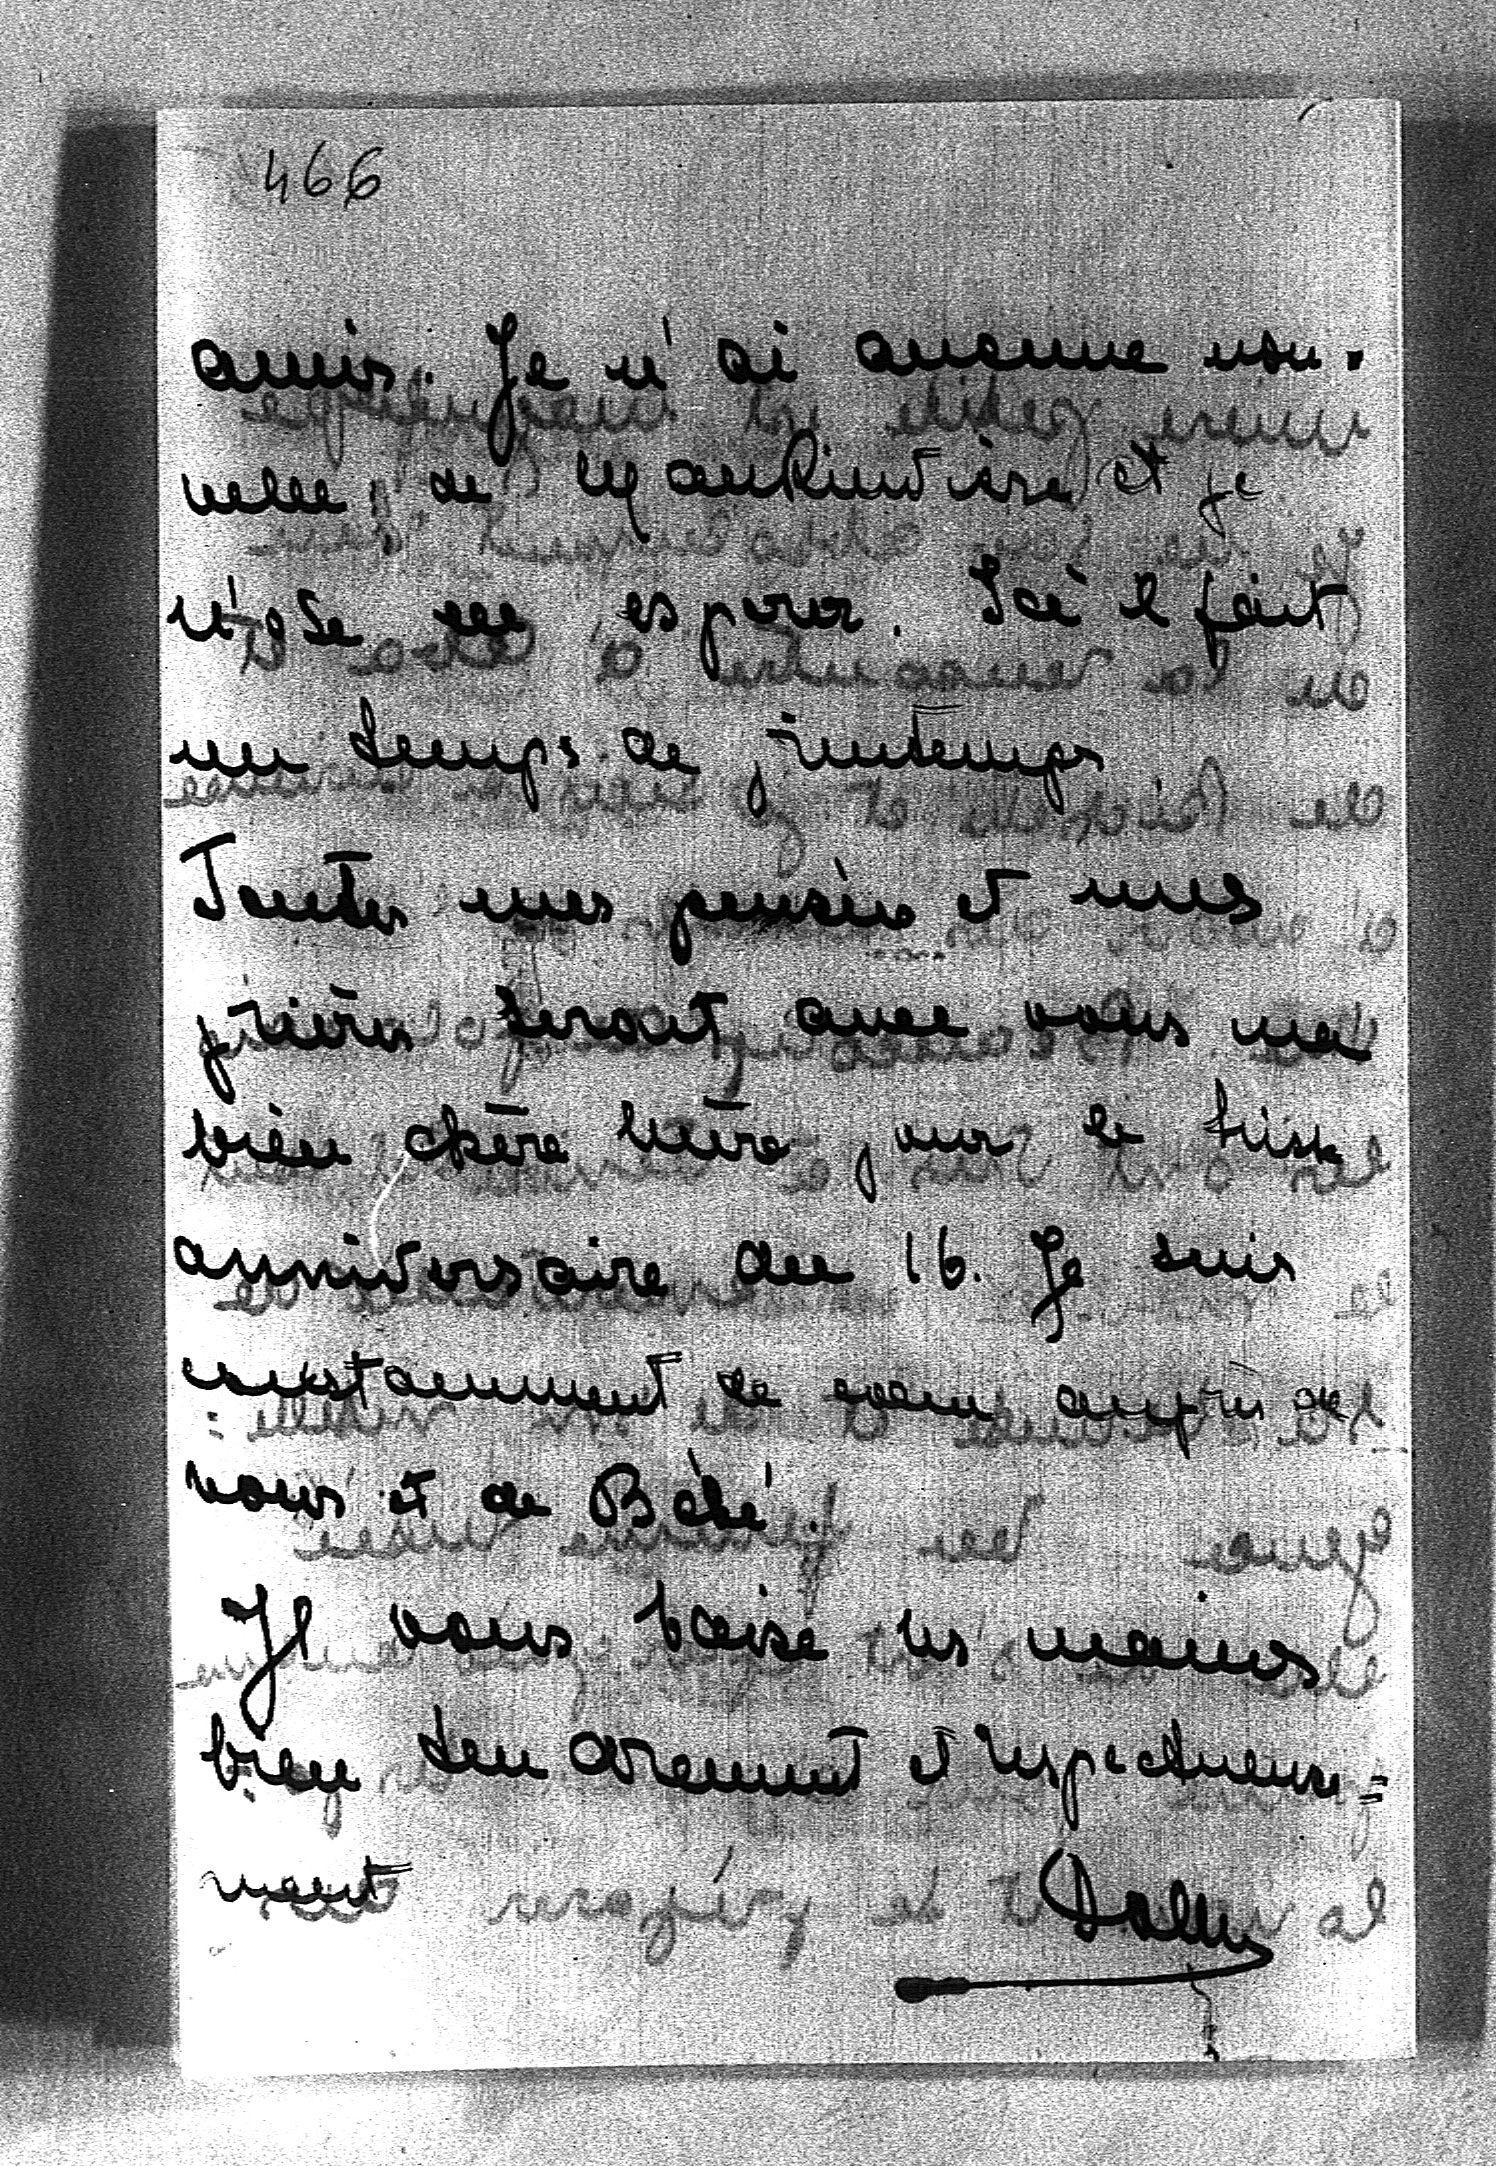 466
amis. Je n'ai aucune nou-
velle de
n'ose en esperer. Ici il fait
un temps de printemps
Toutes mes pensées et mes
prières seront avec vous ma
bien chère pour le triste
anniversaire du 16. Je suis
constamment de coeur auprès de
vous et de Bébé.
Je vous baise les mains
bien tendrement et respectueuse=
ment